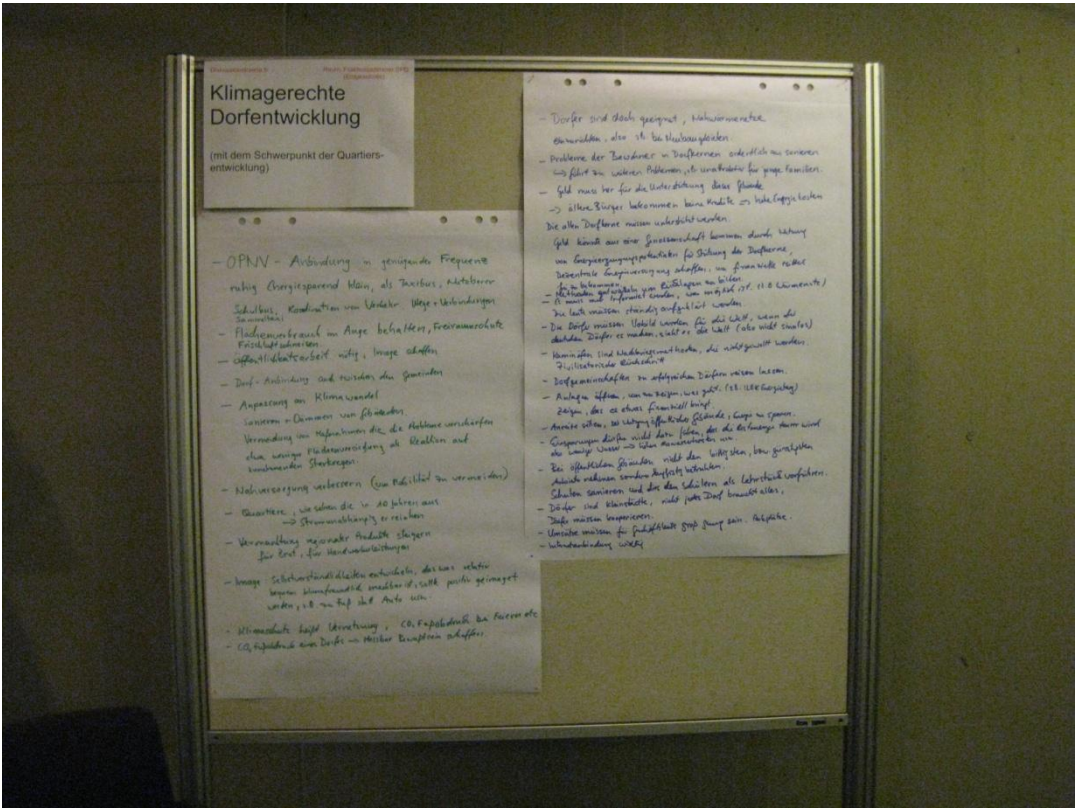 Klimagerechte
Dorfentwicklung
(mit dem Schwerpunkt der Quartiers-
entwicklung)
- ÖPNV - Anbindung in genügender Frequenz
ruhig Energiesparend klein, als Taxibus, Ruftaxi
Schulbus, Koordination von Verkehr Wege + Verbindungen
- Flächenverbrauch im Auge behalten, Freiraumschutz
Frischluftschneisen.
- Öffentlichkeitsarbeit nötig, Image schaffen
- Dorf-Anbindung auch zwischen den Gemeinden
- Anpassung an Klimawandel
Sanieren + Dämmen von Gebäuden
Vermeidung von Maßnahmen die die Probleme verschärfen
etwa weniger Flächenversiegelung als Reaktion auf
kommenden Starkregen.
- Nahversorgung verbessern (um Mobilität zu vermeiden)
- Quartiere, wie sehen die in 10 Jahren aus
→ Stromunabhängig erreichen
- Vermarktung regionaler Produkte steigern
für Brot, für Handwerksleistungen
- Image Selbstverständlichkeiten entwickeln, das was relativ
bequem klimafreundlich machbar ist, sollte positiv geimaget
werden, z.B. zu Fuß statt Auto usw.
- Klimaschutz heißt Vernetzung, CO₂ Fußabdruck bei Feiern etc
- CO₂ Fußabdruck eines Dorfs → Messbar Bewußtsein schaffen.
- Dörfer sind doch geeignet, Nahwärmenetze
einzurichten, also in Neubaugebieten.
- Probleme der Bewohner in Dorfkernen ordentlich zu sanieren
→ führt zu weiteren Problemen, unattraktiv für junge Familien.
- Geld muss her für die Unterstützung dieser Gebäude
→ ältere Bürger bekommen keine Kredite → hohe Energiekosten
Die alten Dorfkerne müssen unterstützt werden.
Geld könnte aus einer Genossenschaft kommen durch Nutzung
von Energieversorgungspotentialen für Stärkung der Dorfkerne,
Dezentrale Energieversorgung schaffen, um finanzielle Mittel
zu bekommen.
- Es muss mehr informiert werden, was möglich ist. (z.B. Wärmenetz)
Die Leute müssen ständig aufgeklärt werden
- Die Dörfer müssen Vorbild werden für die Welt, wenn die
deutschen Dörfer es machen, sieht es die Welt (also nicht sinnlos)
- Kaminöfen sind Nachkriegsmethoden, die nicht gewollt werden.
Zivilisatorischer Rückschritt
- Dorfgemeinschaften zu erfolgreichen Dörfern reisen lassen.
- Anlagen öffnen, um zu zeigen, was geht.
zeigen, das es etwas finanziell bringt.
- Anreize setzen, bei Nutzung öffentlicher Gebäude, Energie zu sparen.
- Einsparungen dürfen nicht dazu führen, das die Restmenge teurer wird
- Bei öffentlichen Gebäuden nicht den billigsten, bzw. günstigsten
Anbieter nehmen sondern langfristig betrachten.
Schulen sanieren und dies den Schülern als Lehrstück vorführen.
- Dörfer sind Kleinstädte, nicht jedes Dorf braucht alles,
Dörfer müssen kooperieren.
- Umsätze müssen für Geschäftsleute groß genug sein. Parkplätze.